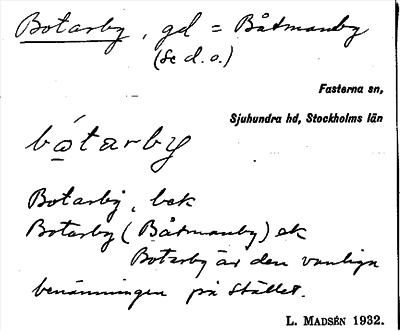 Botarby, gd = Båtmanby
(Se d. o.)
Fasterna sn,
Sjuhundra hd, Stockholms län
bótarby
Botarby, bek
Botarby (Båtmanby) ek
Botarby är den vanliga
benämningen på stället.
L. MADSÉN 1932.